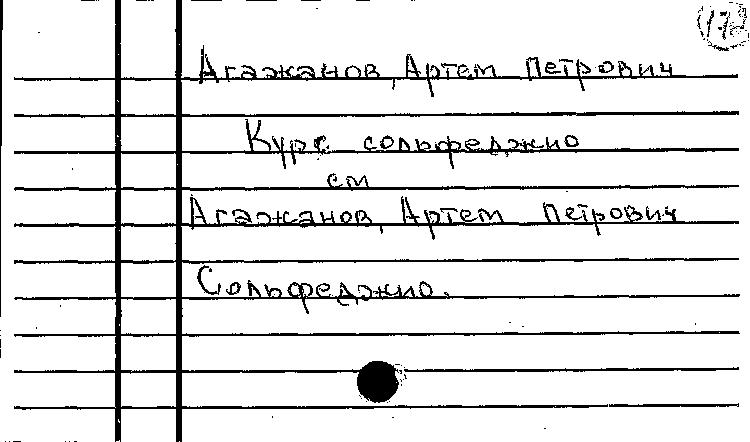 Агажанов, Артем Петрович
Курс сольфеджио
см
Агажанов, Артем Петрович
Сольфеджио.